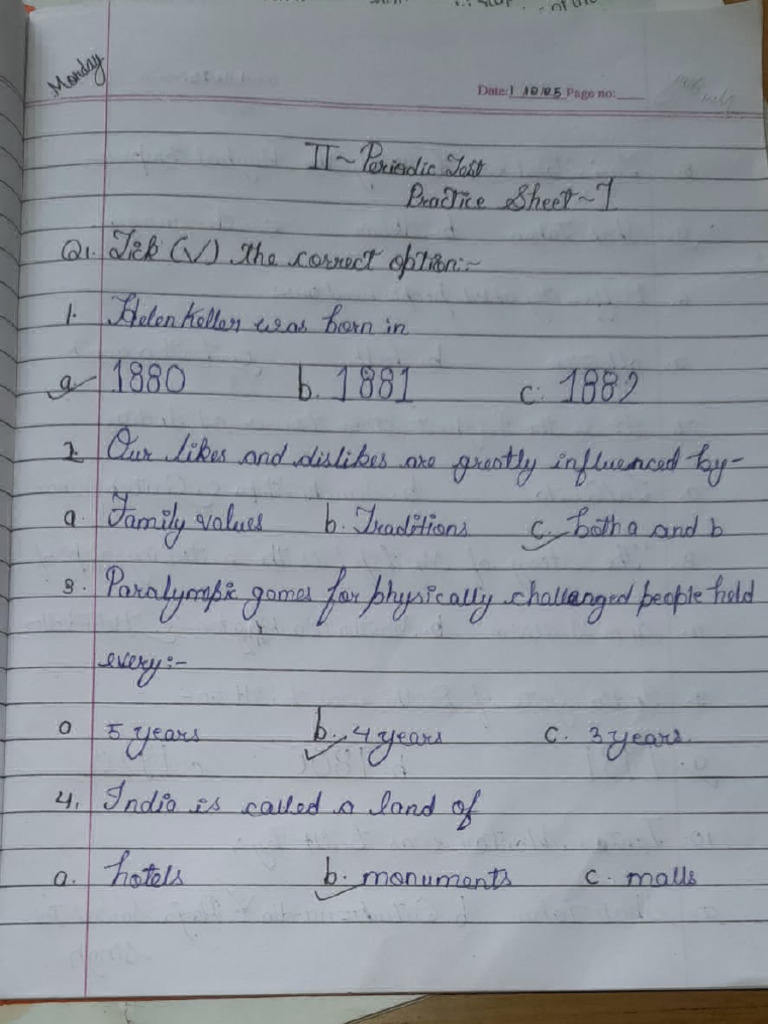 Monday
Date: 1 10/05 Page no:
II ~ Periodic Test
Practice Sheet ~ 1
Q1. Tick (√) the correct option:-
1. Helen Keller was born in
a. 1880 b. 1881 c. 1882
2. Our likes and dislikes are greatly influenced by-
a. Family values b. Traditions c. both a and b
3. Paralympic games for physically challenged people held
every:-
a 5 years b. 4 years c. 3 years.
4. India is called a land of
a. hotels b. monuments c. malls